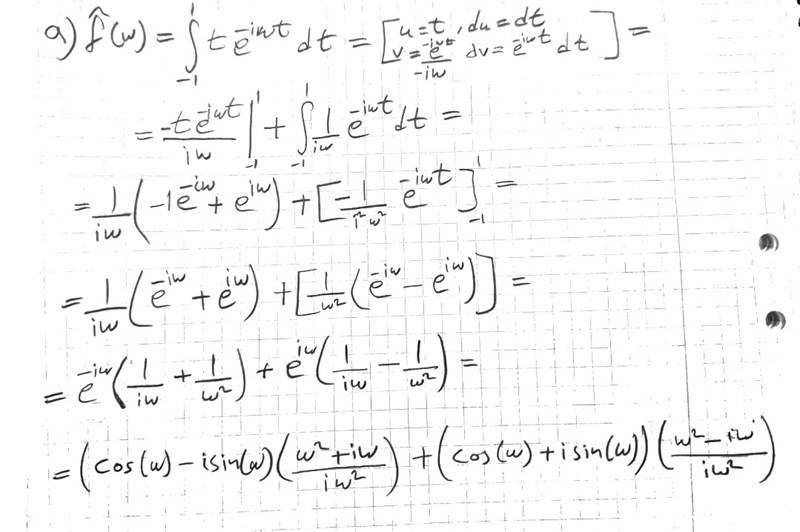 a) f̂(ω) = ∫₋₁¹ t e^{-iωt} dt = [u=t, du=dt; v=e^{-iωt}/-iω, dv=e^{-iωt} dt] =
= -te^{-iωt}/iω |₋₁¹ + ∫₋₁¹ 1/iω e^{-iωt} dt =
= 1/iω (-1e^{-iω} + e^{iω}) + [-1/i²ω² e^{-iωt}]₋₁¹ =
= 1/iω (e^{-iω} + e^{iω}) + [1/ω² (e^{-iω} - e^{iω})] =
= e^{-iω} (1/iω + 1/ω²) + e^{iω} (1/iω - 1/ω²) =
= (cos(ω) - isin(ω) ((ω²+iω)/iω²) + (cos(ω) + isin(ω)) ((ω²-iω)/iω²)